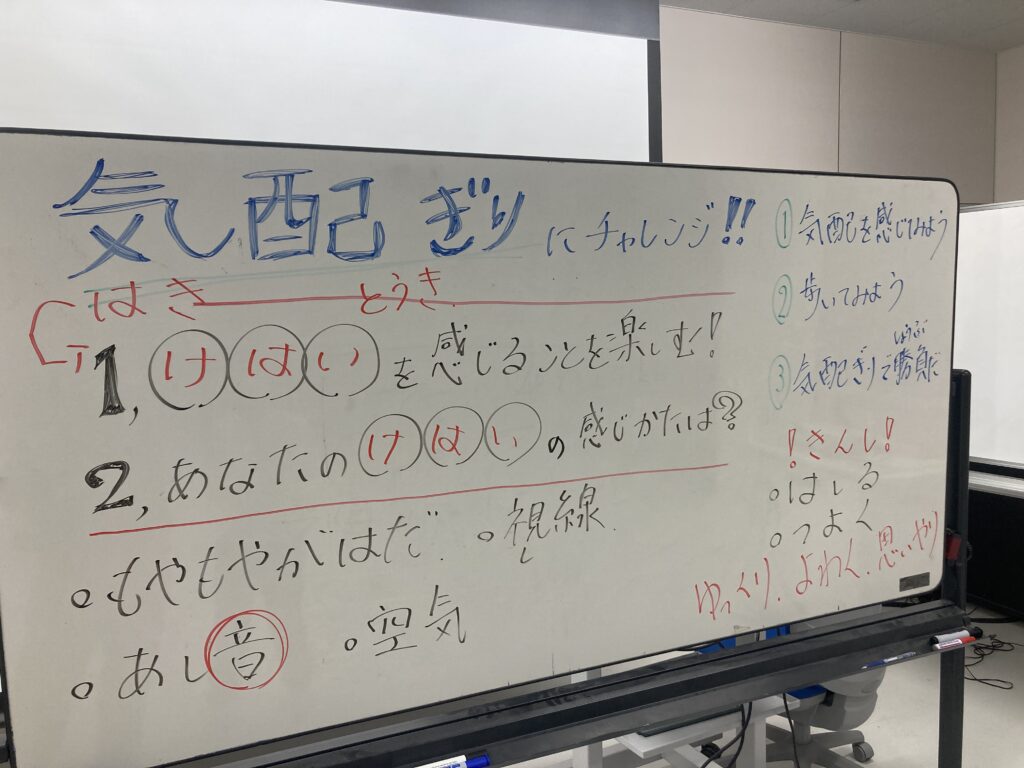 気配ぎりにチャレンジ!!
はき とうき
1, けはいを感じることを楽しむ!
2, あなたのけはいの感じかたは?
。もやもやがはだ 。視線
し
。あし音 。空気
① 気配を感じてみよう
② 歩いてみよう
しょうぶ
③ 気配ぎりで勝負だ
!きんし!
。はしる
。つよく
ゆっくり、よわく、思いやり